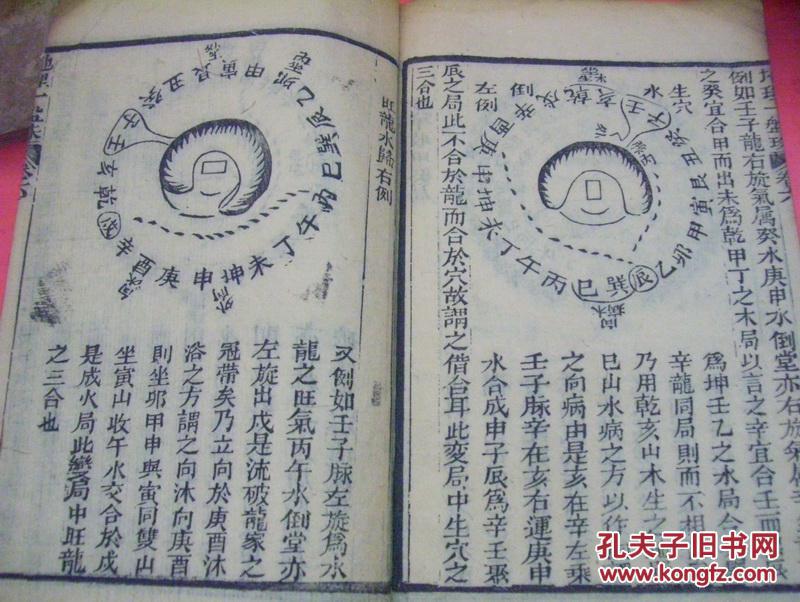 例如壬子龍右旋氣属癸水庚申水倒堂亦右旋氣
之癸宜合甲而出未爲乾甲丁之木局以言之辛宜合壬而
爲坤壬乙之水局今
辛龍同局則而不相
乃用乾亥山木生之
巳山水病之方以作
之向病由是亥在辛左乘
壬子脉辛在亥右運庚申
水合成申子辰爲辛壬聚
辰之局此不合於龍而合於穴故謂之借合耳此変局中生穴之
三合也
生穴
水
倒
左例
壬子癸丑艮寅甲卯乙辰巽巳丙午丁未坤申庚酉辛戌乾亥
旺龍水歸右例
壬子癸丑艮寅甲卯乙辰巽巳丙午丁未坤申庚酉辛戌乾亥
又例如壬子脉左旋爲水
龍之旺氣丙午水倒堂亦
左旋出戌是流破龍家之
冠帶矣乃立向於庚酉沐
浴之方謂之向沐向庚酉
則坐卯甲申與寅同雙山
坐寅山收午水交合於戌
是成火局此變局中旺龍
之三合也
孔夫子旧书网
www.kongfz.com